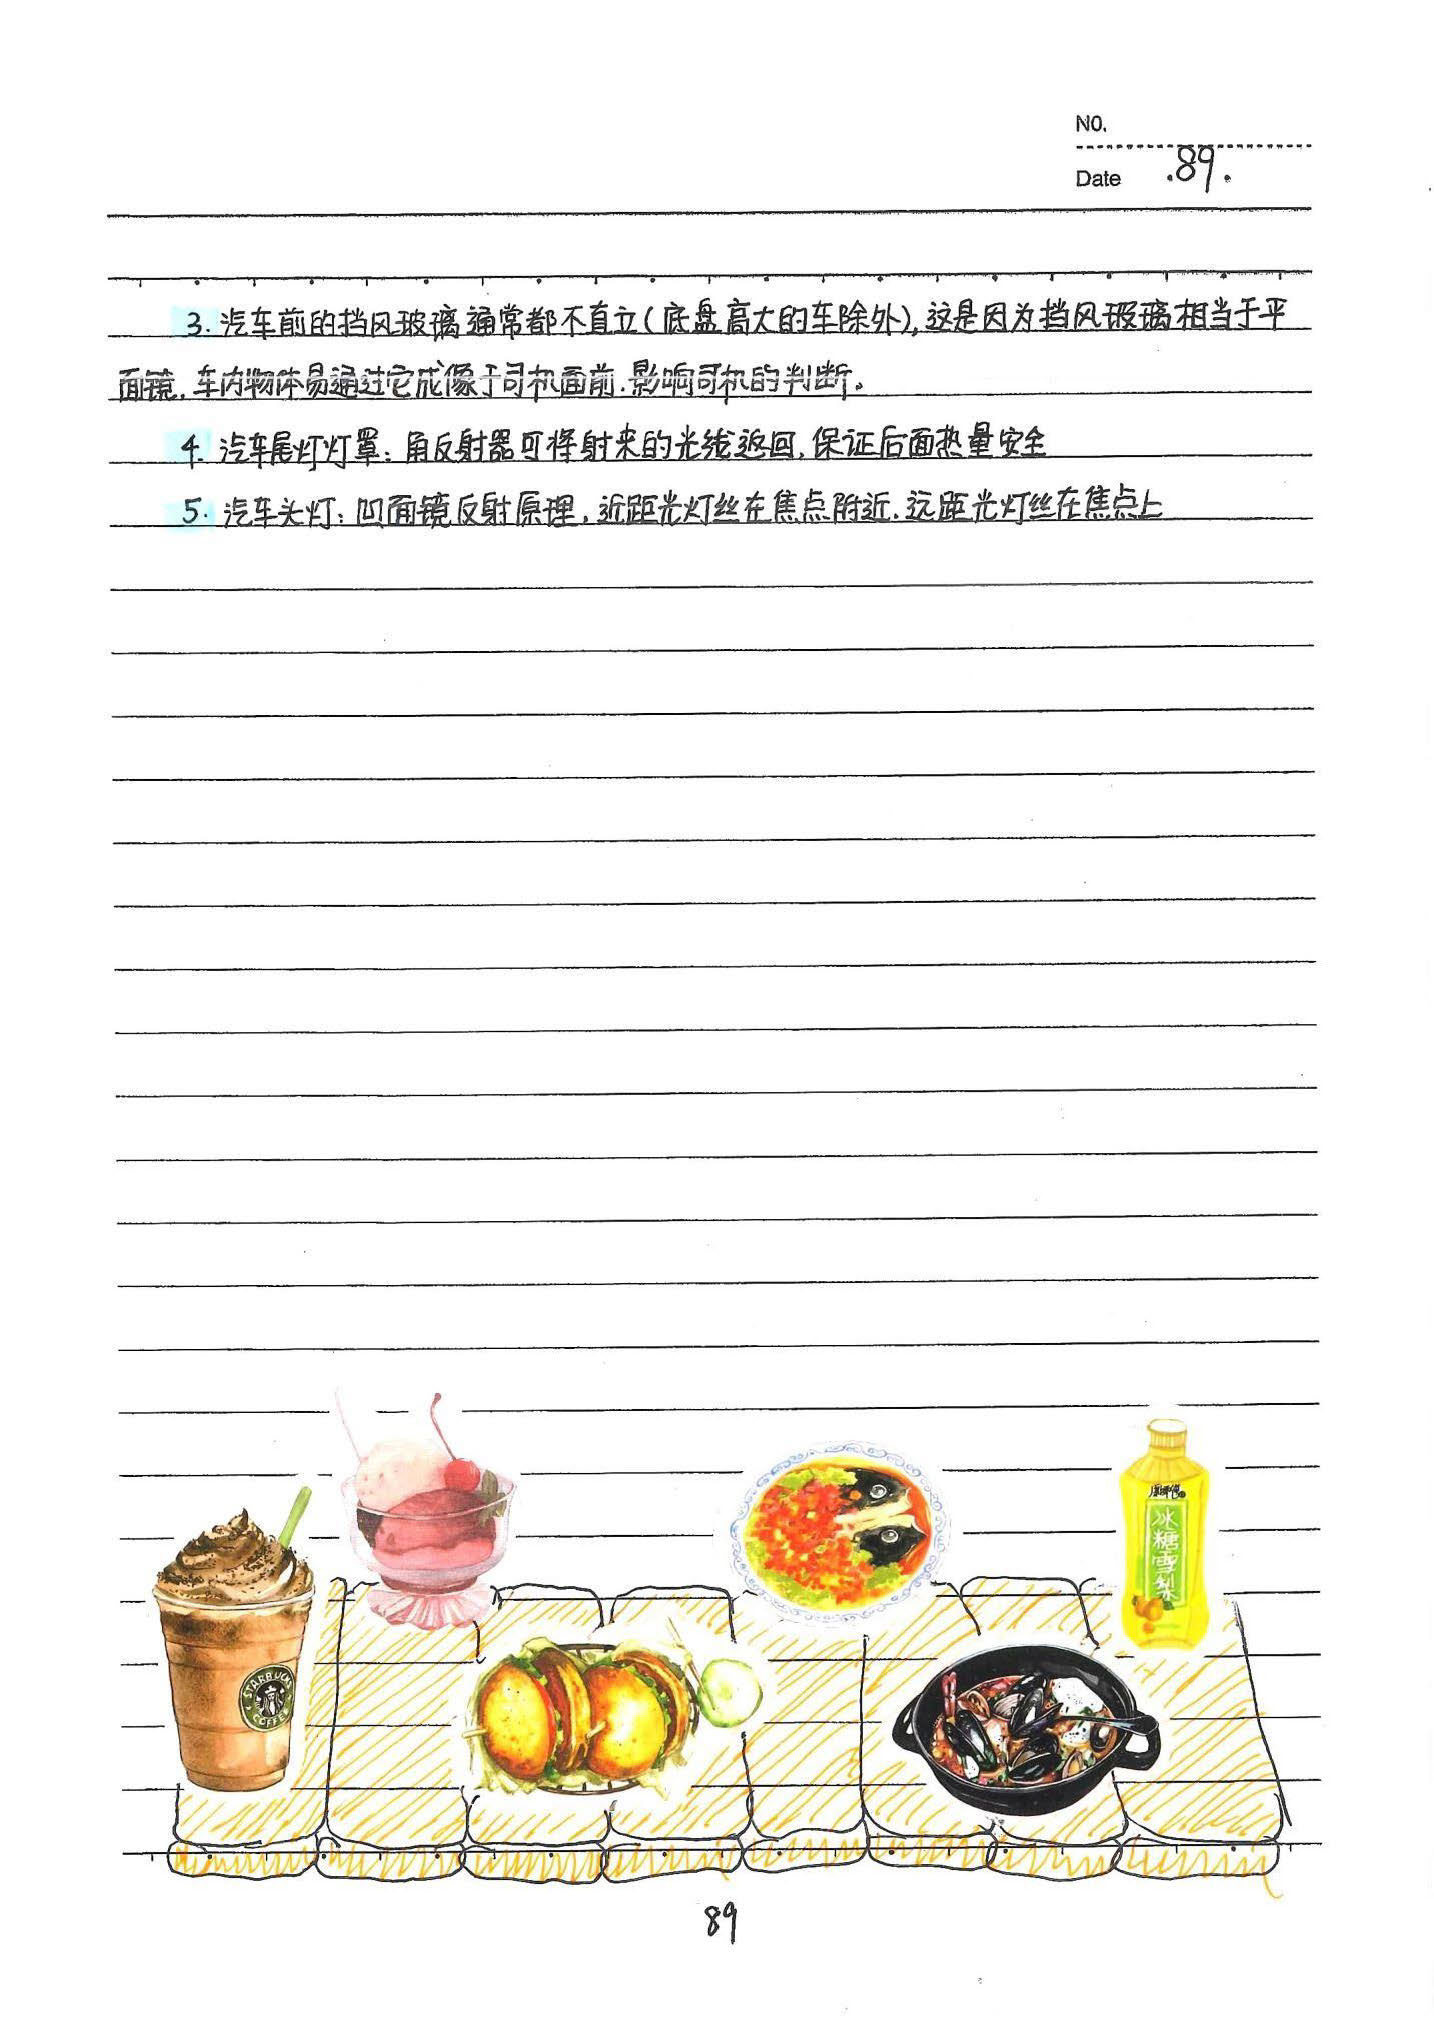 NO.
Date .89.
3. 汽车前的挡风玻璃通常都不直立(底盘高大的车除外),这是因为挡风玻璃相当于平
面镜,车内物体易通过它成像于司机面前.影响司机的判断。
4. 汽车尾灯灯罩:角反射器可将射来的光线返回,保证后面热量安全
5. 汽车头灯:凹面镜反射原理,近距光灯丝在焦点附近.远距光灯丝在焦点上
康师傅
冰糖雪梨
STARBUCKS
COFFEE
89